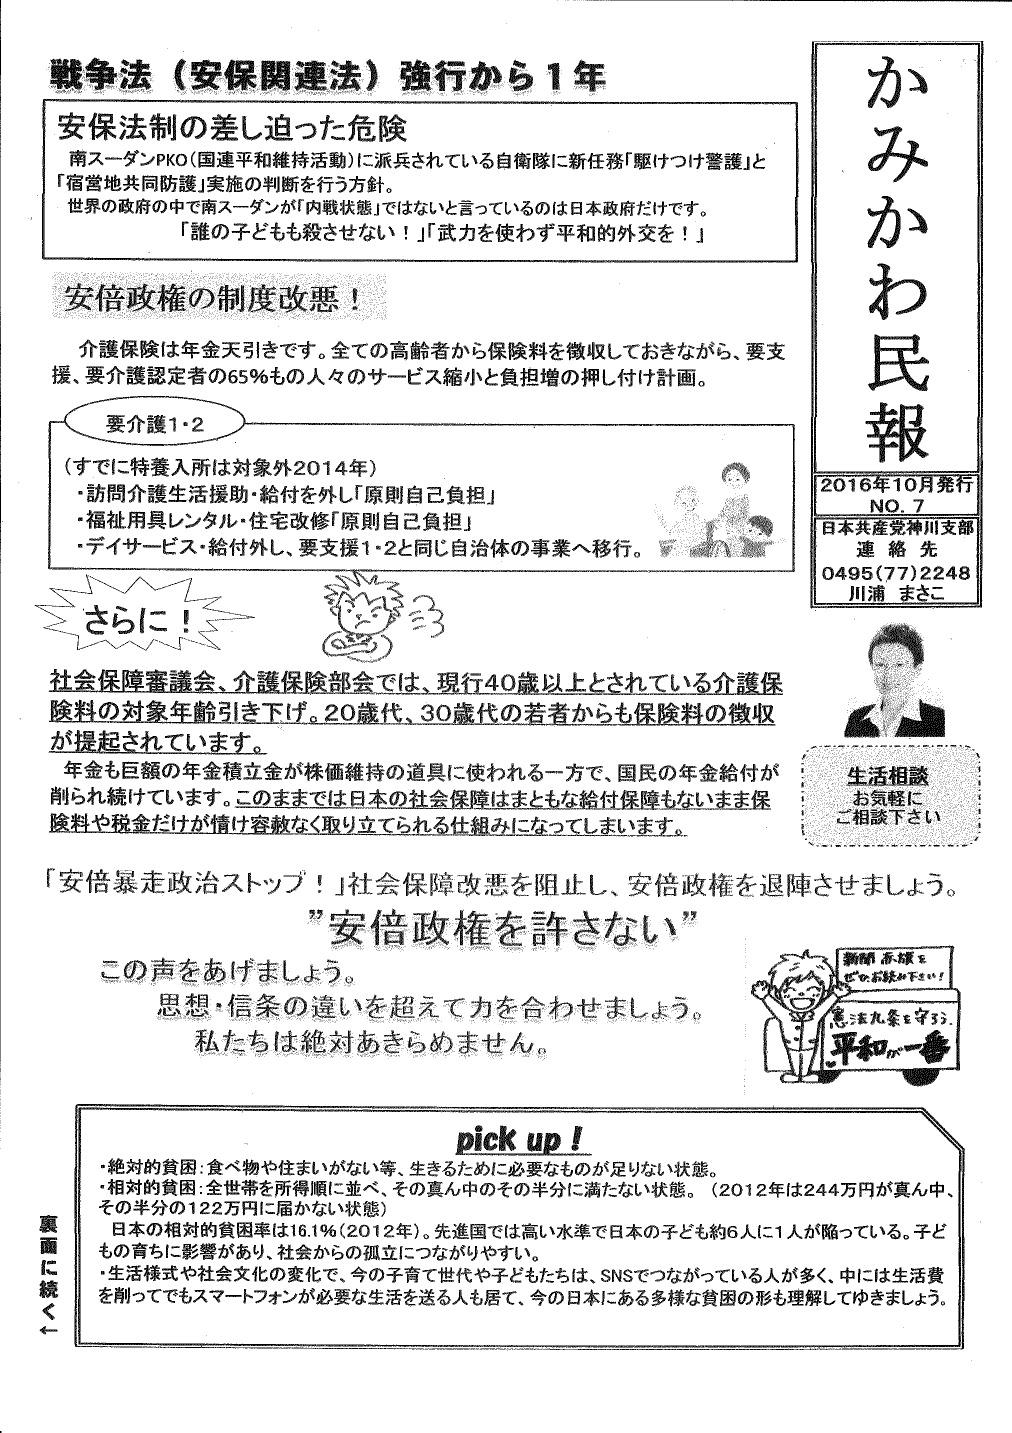 かみかわ民報
2016年10月発行
NO. 7
日本共産党神川支部
連 絡 先
0495(77)2248
川浦 まさこ
戦争法（安保関連法）強行から１年
安保法制の差し迫った危険
南スーダンPKO(国連平和維持活動)に派兵されている自衛隊に新任務｢駆けつけ警護｣と
｢宿営地共同防護｣実施の判断を行う方針。
世界の政府の中で南スーダンが｢内戦状態｣ではないと言っているのは日本政府だけです。
｢誰の子どもも殺させない！｣｢武力を使わず平和的外交を！｣
安倍政権の制度改悪！
介護保険は年金天引きです。全ての高齢者から保険料を徴収しておきながら、要支
援、要介護認定者の65%もの人々のサービス縮小と負担増の押し付け計画。
要介護1・2
(すでに特養入所は対象外2014年)
・訪問介護生活援助・給付を外し｢原則自己負担｣
・福祉用具レンタル・住宅改修｢原則自己負担｣
・デイサービス・給付外し、要支援1・2と同じ自治体の事業へ移行。
さらに！
社会保障審議会、介護保険部会では、現行40歳以上とされている介護保
険料の対象年齢引き下げ。20歳代、30歳代の若者からも保険料の徴収
が提起されています。
年金も巨額の年金積立金が株価維持の道具に使われる一方で、国民の年金給付が
削られ続けています。このままでは日本の社会保障はまともな給付保障もないまま保
険料や税金だけが情け容赦なく取り立てられる仕組みになってしまいます。
生活相談
お気軽に
ご相談下さい
｢安倍暴走政治ストップ！｣社会保障改悪を阻止し、安倍政権を退陣させましょう。
”安倍政権を許さない”
この声をあげましょう。
思想・信条の違いを超えて力を合わせましょう。
私たちは絶対あきらめません。
新聞 赤旗を
ぜひお読み下さい！
憲法九条を守ろう.
平和が一番
pick up！
・絶対的貧困：食べ物や住まいがない等、生きるために必要なものが足りない状態。
・相対的貧困：全世帯を所得順に並べ、その真ん中のその半分に満たない状態。（2012年は244万円が真ん中、
その半分の122万円に届かない状態)
日本の相対的貧困率は16.1%(2012年)。先進国では高い水準で日本の子ども約6人に1人が陥っている。子ど
もの育ちに影響があり、社会からの孤立につながりやすい。
・生活様式や社会文化の変化で、今の子育て世代や子どもたちは、SNSでつながっている人が多く、中には生活費
を削ってでもスマートフォンが必要な生活を送る人も居て、今の日本にある多様な貧困の形も理解してゆきましょう。
裏面に続く←